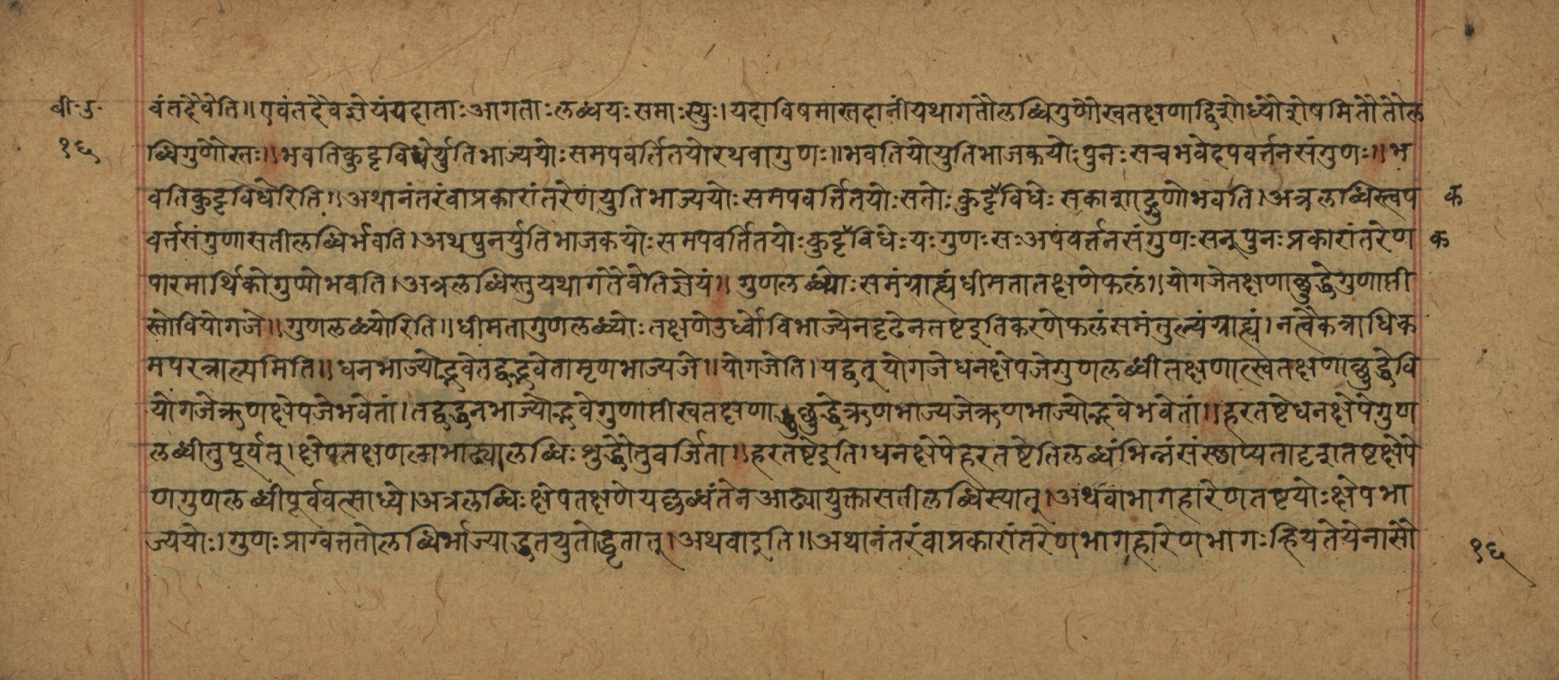 बी॰उ॰
१६
वंतदैवेति॥एवंतदैवज्ञेयंयदाताःआगताःलब्धयःसमाःस्युः।यदाविषमास्तदानींयथागतौलब्धिगुणौस्वतक्षणाद्विशोध्यौशेषमितौतौल
ब्धिगुणौस्तः॥भवतिकुट्टविधेर्युतिभाज्ययोःसमपवर्तितयोरथवागुणः॥भवतियोयुतिभाजकयोःपुनःसचभवेदपवर्त्तनसंगुणः॥भ
वतिकुट्टविधेरिति॥अथानंतरंवाप्रकारांतरेणयुतिभाज्ययोःसमपवर्त्तितयोःसतोःकुट्टविधेःसकाशाद्गुणोभवति।अत्रलब्धिस्त्वप क
वर्त्तसंगुणासतीलब्धिर्भवति।अथपुनर्युतिभाजकयोःसमपवर्तितयोःकुट्टविधेःयःगुणःसःअपवर्त्तनसंगुणःसन्पुनःप्रकारांतरेण क
पारमार्थिकोगुणोभवति।अत्रलब्धिस्तुयथागतैवेतिज्ञेयं॥गुणलब्ध्योःसमंग्राह्यंधीमतातक्षणेफलं॥योगजेतक्षणाछुद्धेगुणाप्ती
स्तोवियोगजे॥गुणलब्ध्योरिति॥धीमतागुणलब्ध्योःतक्षणेउर्ध्वोविभाज्येनदृढेनतष्टइतिकरणेफलंसमंतुल्यंग्राह्यं।नत्वेकत्राधिक
मपरत्राल्पमिति॥धनभाज्योद्भवेतद्वद्भवेतामृणभाज्यजे॥योगजेति।यद्वत्योगजेधनक्षेपजेगुणलब्धीतक्षणात्स्वतक्षणाछुद्धेवि
योगजेऋणक्षेपजेभवेतां।तद्वद्धनभाज्योद्भवेगुणाप्तीस्वतक्षणाछुद्धेऋणभाज्यजेऋणभाज्योद्भवेभवेतां॥हरतष्टेधनक्षेपेगुण
लब्धीतुपूर्ववत्।क्षेपतक्षणलाभाढ्यालब्धिःशुद्धौतुवर्जिता॥हरतष्टेइति।धनक्षेपेहरतष्टेतिलब्धंभिन्नंसंस्छाप्यतादृशतष्टक्षेपे
णगुणलब्धीपूर्ववत्साध्ये।अत्रलब्धिःक्षेपतक्षणेयछब्धंतेनआढ्यायुक्तासतीलब्धिस्यात्।अथवाभागहारेणतष्टयोःक्षेपभा
ज्ययोः।गुणःप्राग्वत्ततोलब्धिर्भाज्याद्धतयुतोद्धृतात्।अथवाइति॥अथानंतरंवाप्रकारांतरेणभागहारेणभागःह्रियतेयेनासौ
१६